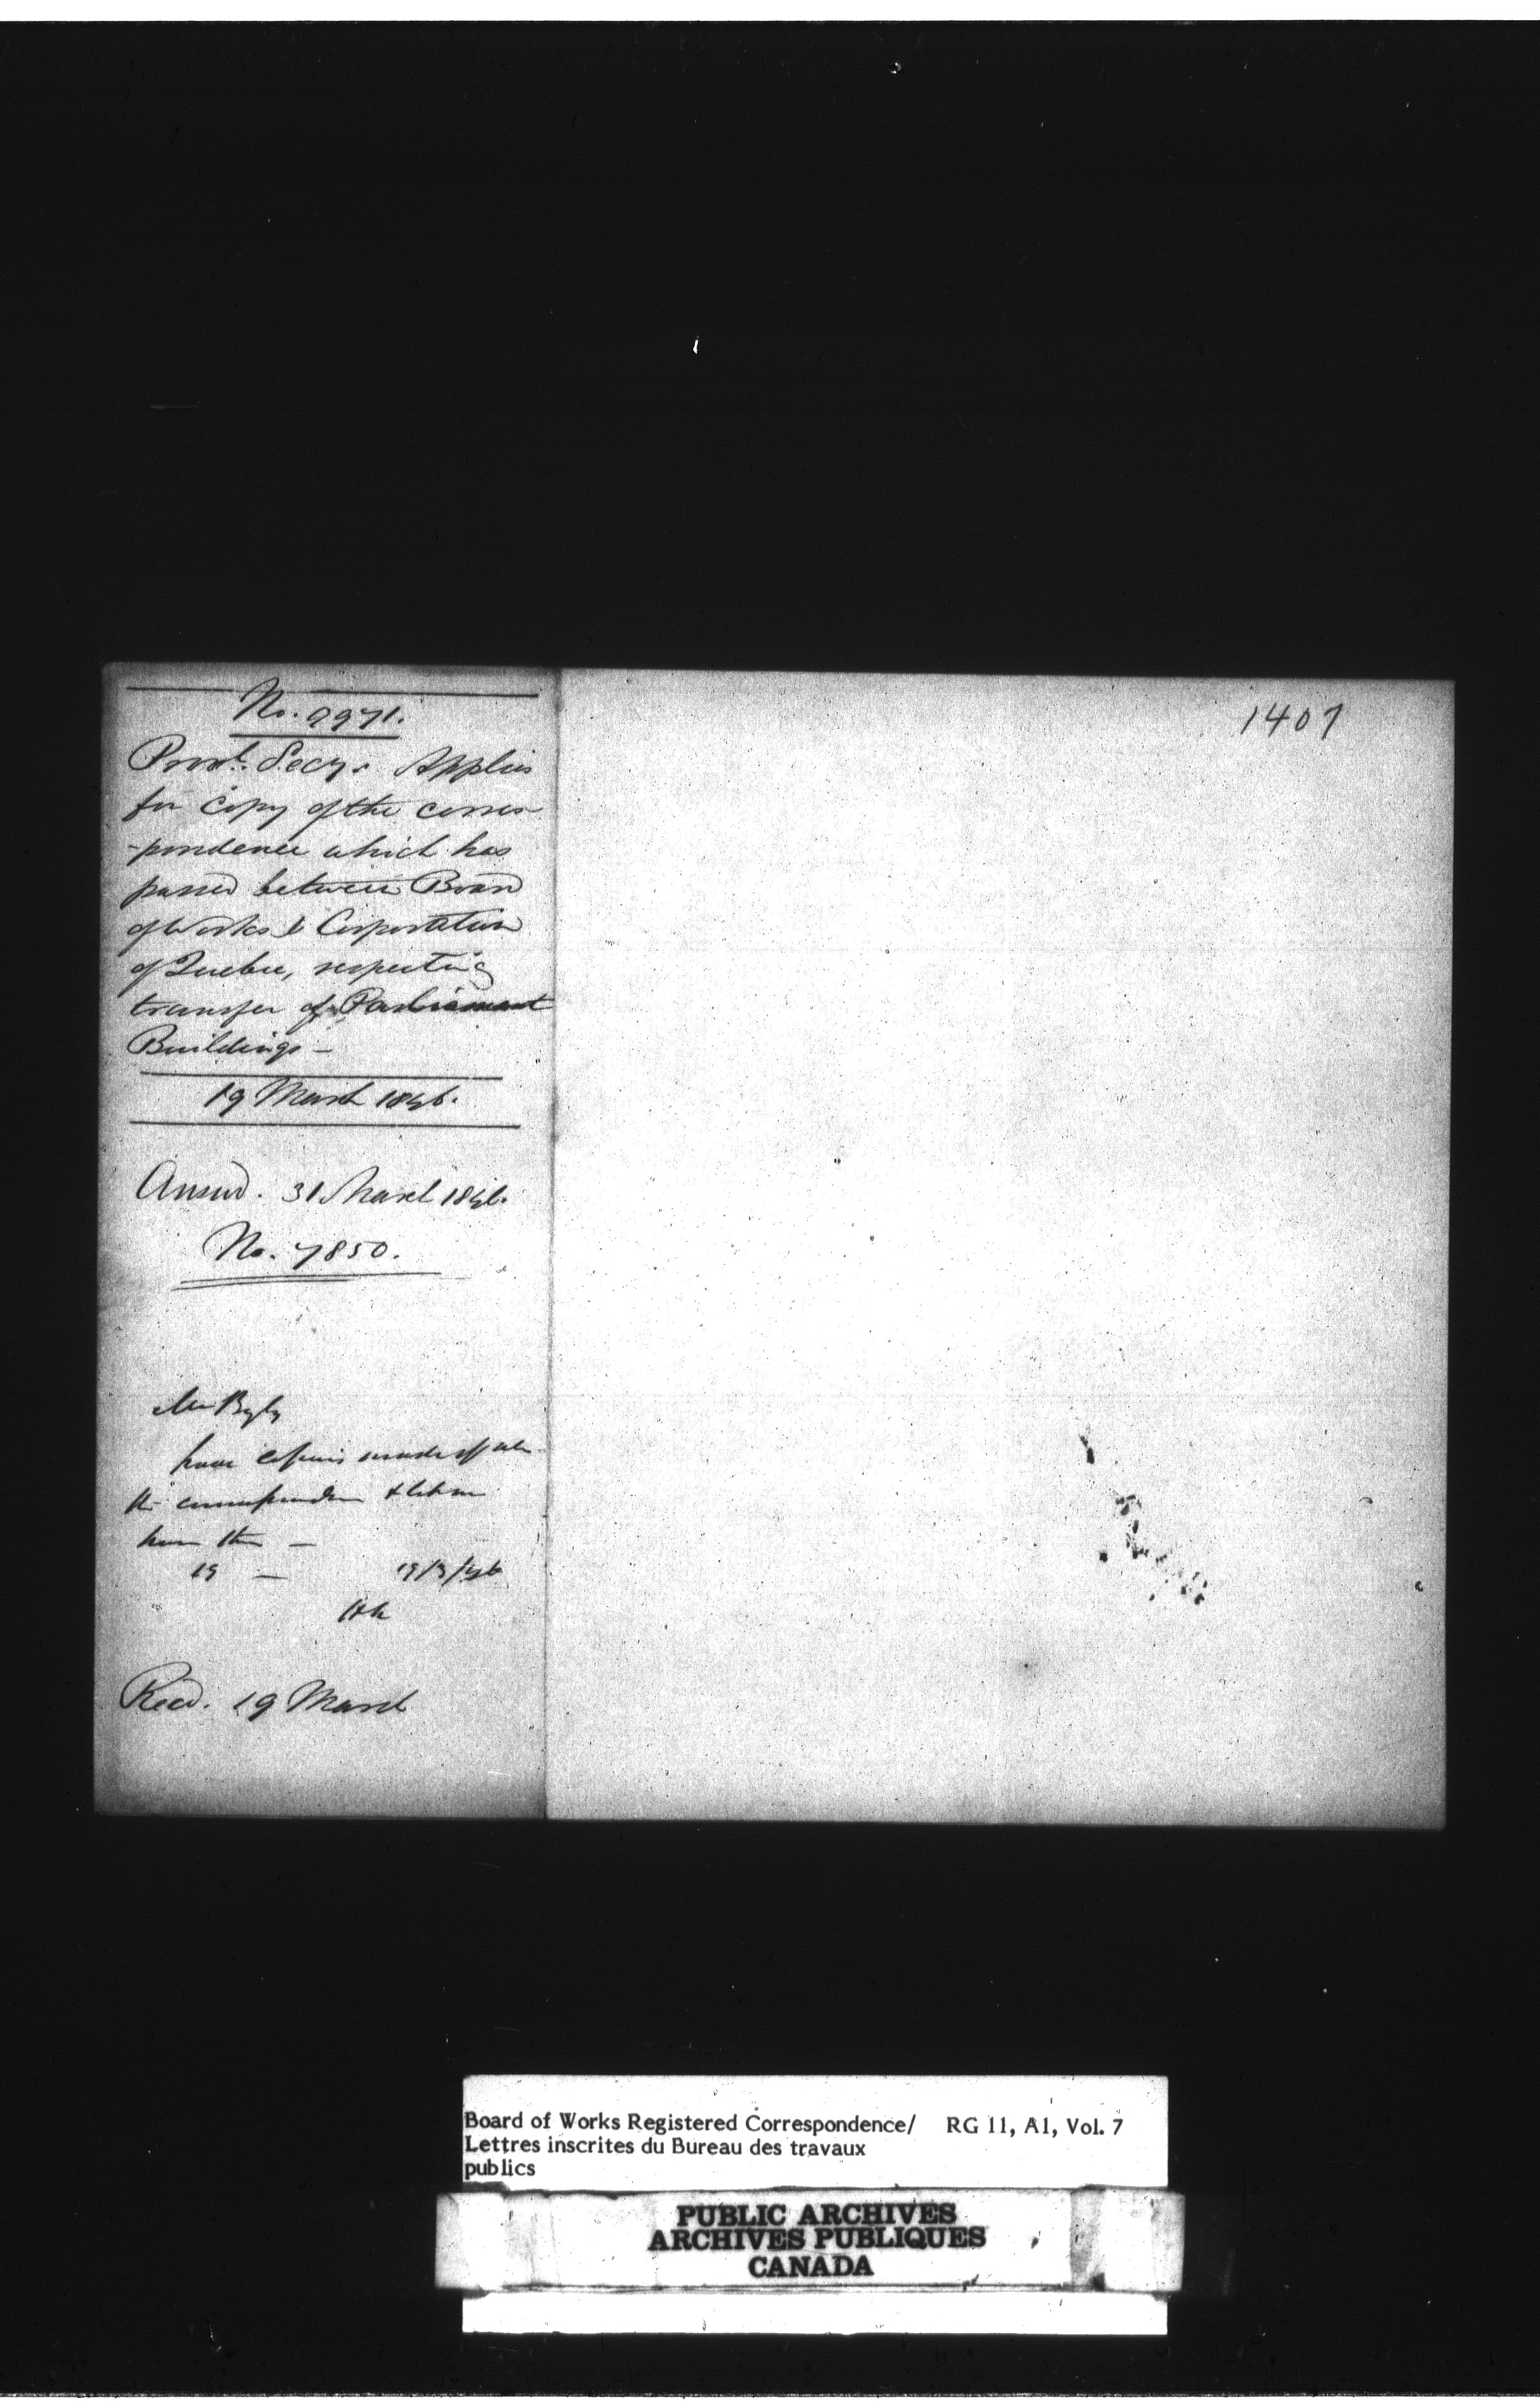 No. 9971.
Provl. Secy. Applies
for Copy of the corres-
-pondence which has
passed between Board
of Works & Corporation
of Quebec, respecting
transfer of Parliament
Buildings —
19 March 1846.
Answd. 31 March 1846.
No. 7850.
Mr
have copies made of
the correspondence & let me
have
19 — 19/3/46
Recd. 19 March
1407
Board of Works Registered Correspondence/ RG 11, A1, Vol. 7
Lettres inscrites du Bureau des travaux
publics
PUBLIC ARCHIVES
ARCHIVES PUBLIQUES
CANADA